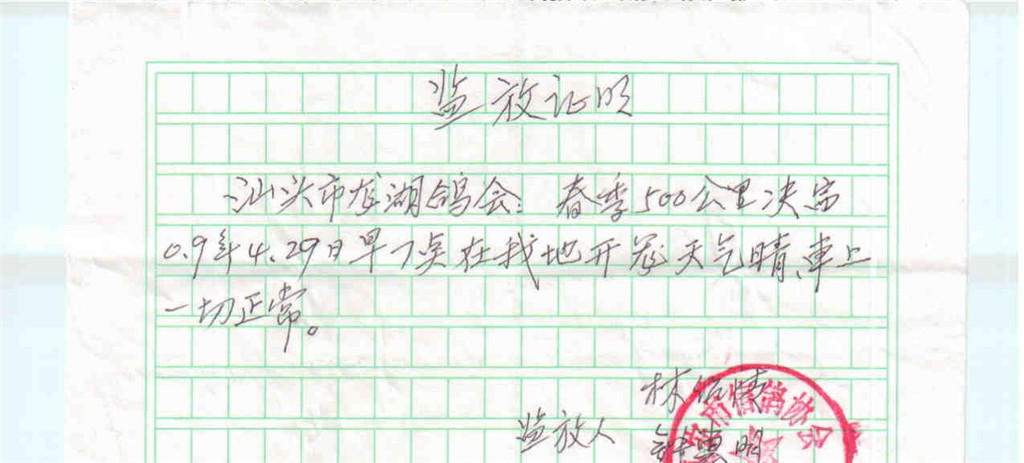 监放证明
汕头市龙湖鸽会：春季500公里决赛
0.9年4.29日早7点在我地开笼天气晴、车上
一切正常。
林
市信鸽协会
监放人
惠明